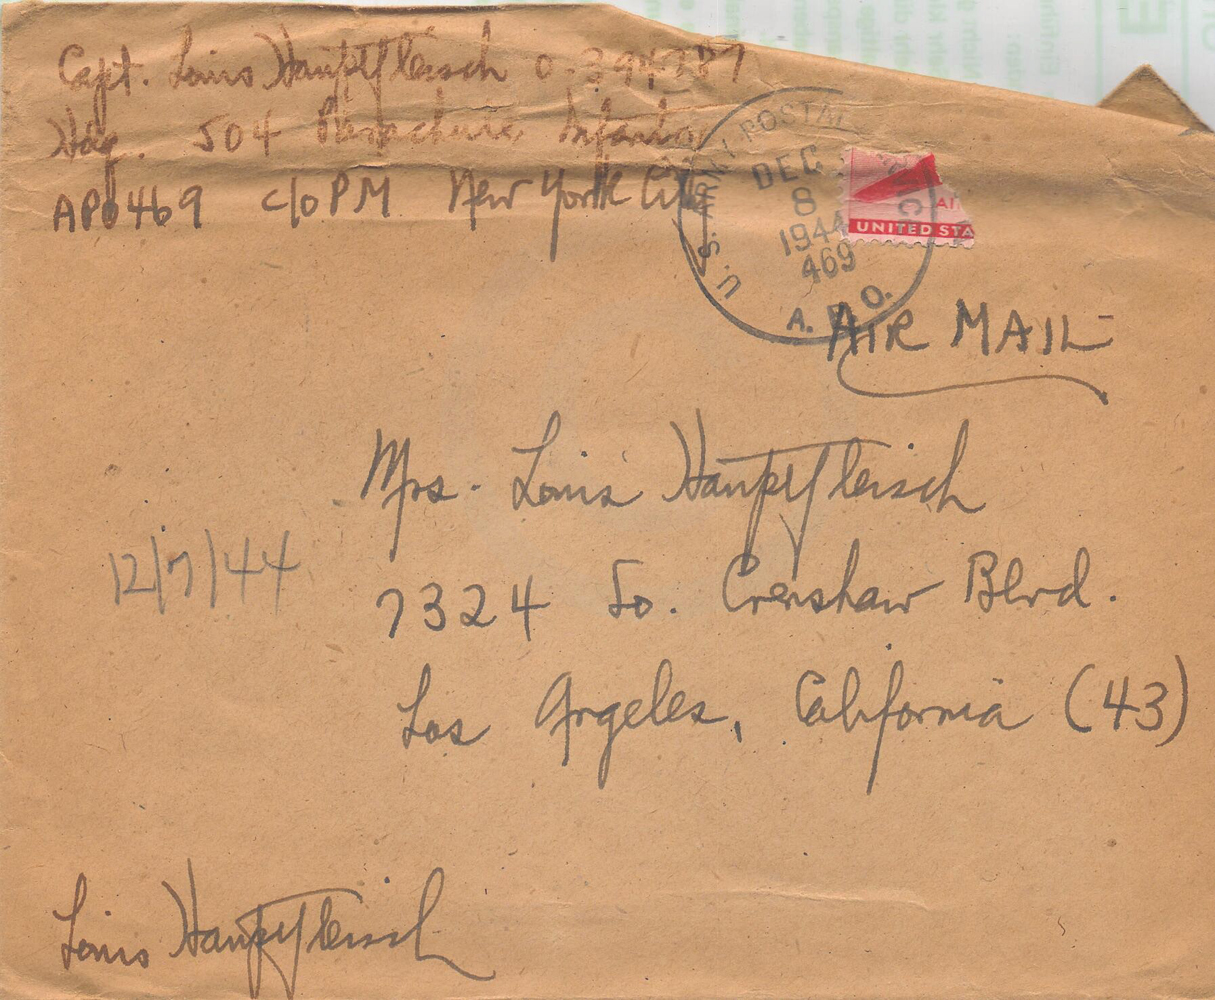 Capt. Louis Hauptfleisch O-394787
Hdq. 504 Parachute Infantry
APO 469 c/o PM New York City
U.S. ARMY POSTAL SERVICE
DEC
8
1944
469
A.P.O.
AI
UNITED STA
AIR MAIL
Mrs. Louis Hauptfleisch
12/7/44
7324 So. Crenshaw Blvd.
Los Angeles, California (43)
Louis Hauptfleisch